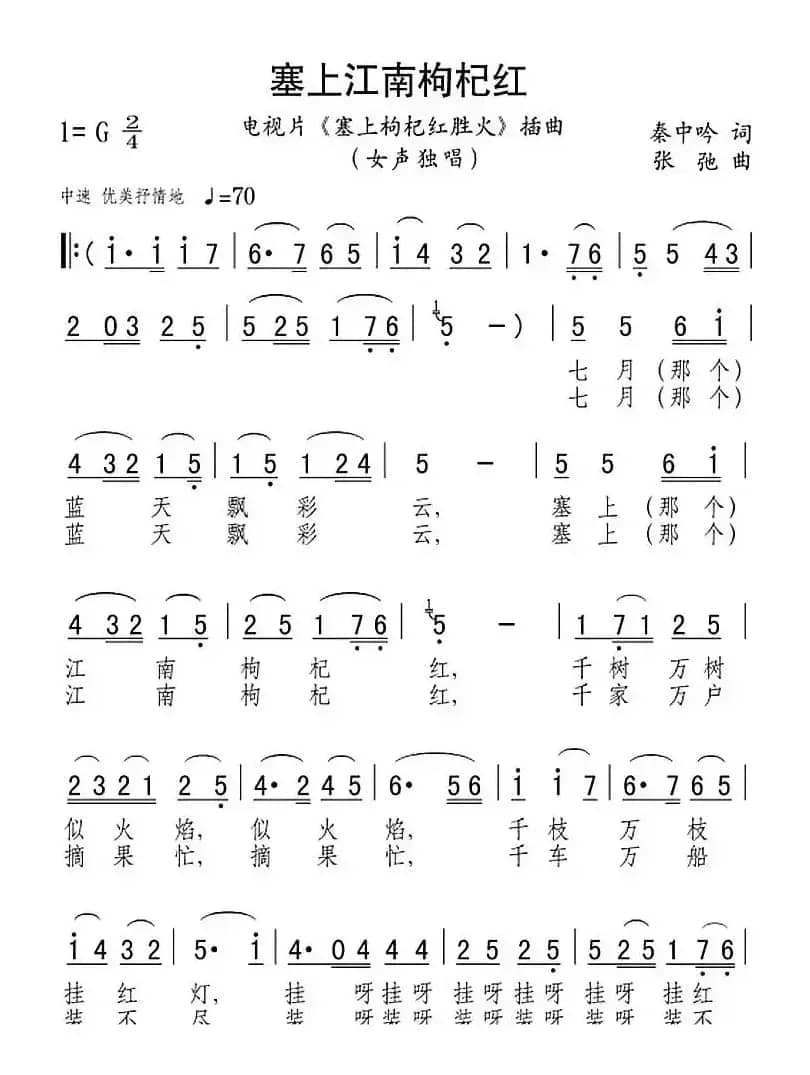 塞上江南枸杞红
1= G 2/4
电视片《塞上枸杞红胜火》插曲
秦中吟 词
（女声独唱）
张 弛 曲
中速 优美抒情地 ♩=70
‖:( i· i i 7 | 6· 7 6 5 | i 4 3 2 | 1· 7 6 | 5 5 4 3 |
2 0 3 2 5 | 5 2 5 1 7 6 | 5 －) | 5 5 6 i |
七 月（那 个）
七 月（那 个）
4 3 2 1 5 | 1 5 1 2 4 | 5 － | 5 5 6 i |
蓝 天 飘 彩 云， 塞 上（那 个）
蓝 天 飘 彩 云， 塞 上（那 个）
4 3 2 1 5 | 2 5 1 7 6 | 5 － | 1 7 1 2 5 |
江 南 枸 杞 红， 千 树 万 树
江 南 枸 杞 红， 千 家 万 户
2 3 2 1 2 5 | 4· 2 4 5 | 6· 5 6 | i i 7 | 6· 7 6 5 |
似 火 焰， 似 火 焰， 千 枝 万 枝
摘 果 忙， 摘 果 忙， 千 车 万 船
i 4 3 2 | 5· i | 4· 0 4 4 4 | 2 5 2 5 | 5 2 5 1 7 6 |
挂 红 灯， 挂 呀 挂 呀 挂 呀 挂 呀 挂 呀 挂 红
装 不 尽， 装 呀 装 呀 装 呀 装 呀 装 呀 装 不